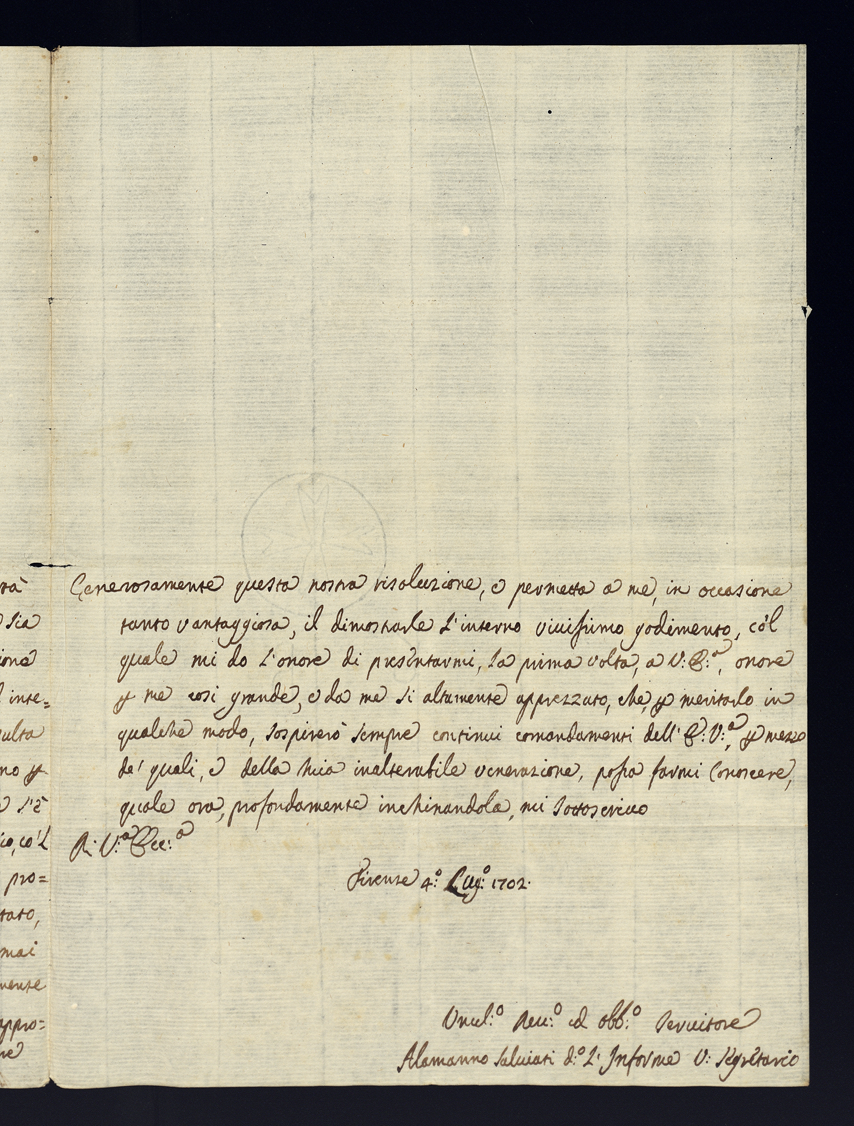 rà
sia
ione
inte=
sulta
no p
l'è
io, co'l
pro=
tato,
mai
mente
appro=
re
Generosamente questa nostra risoluzione, e permetta a me, in occasione
tanto vantaggiosa, il dimostrarle l'interno vivissimo godimento, co'l
quale mi do l'onore di presentarmi, la prima volta, a V: E:ᵃ, onore
p me così grande, e da me sì altamente apprezzato, che, p meritarlo in
qualche modo, sospirerò sempre continui comandamenti dell'E: V:ᵃ, p mezzo
de' quali, e della mia inalterabile venerazione, possa farmi conoscere,
quale ora, profondamente inchinandola, mi sottoscrivo
Di V:ᵃ Ecc:ᵃ
Firenze 4:º Lug:º 1702.
Umil:º Dev:º ed obb:º Servitore
Alamanno Salviati d:º L'Informe V: Segretario